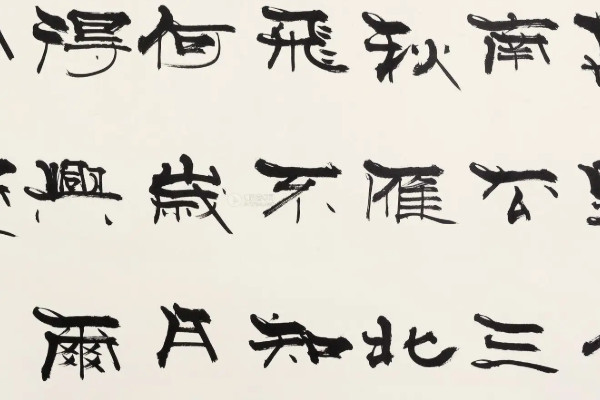 南去三
秋雁北
飛不知
何歲月
得與爾